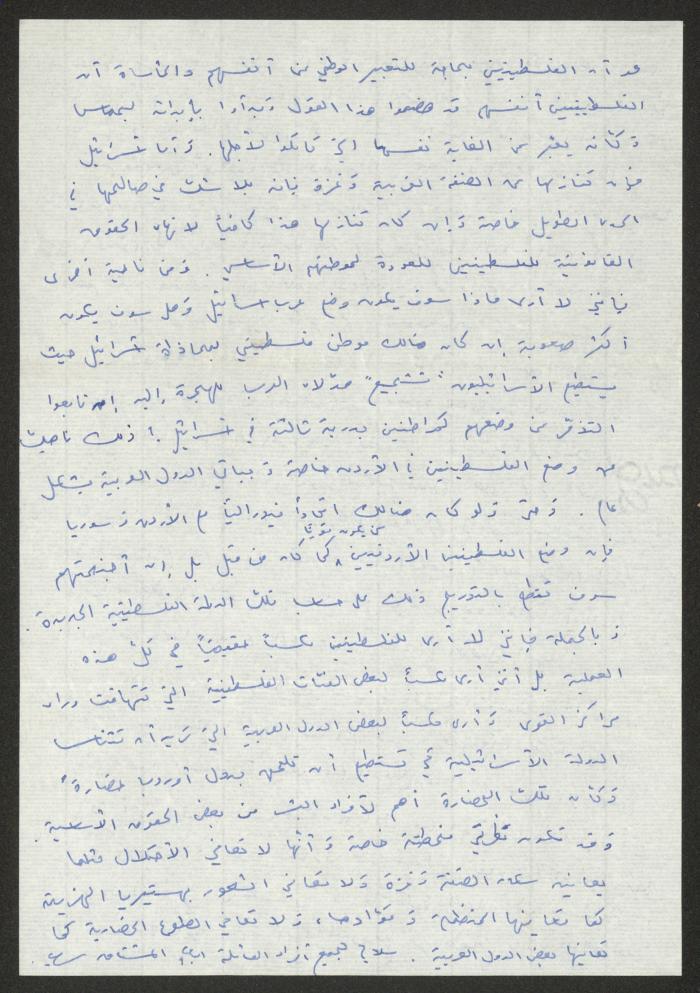 عد أن الفلسطينيين بحاجة للتعبير الوطني عن أنفسهم والمأساة أن
الفلسطينيين أنفسهم قد هضموا هذا القول وبدأوا بإيراده
وكأنه يعبر عن الغاية نفسها التي كانوا لأجلها. وأما اسرائيل
فإن تنازلها عن الضفة الغربية وغزة فإنه بلا شك في صالحها في
المدى الطويل خاصة وإن كان تنازلها هذا كافياً لانهاء الحقوق
القانونية للفلسطينيين للعودة لموطنهم الأساسي. ومن ناحية أخرى
فإنني لا أدري ماذا سوف يكون وضع عرب اسرائيل وهل سوف يكون
أكثر صعوبة إن كان هنالك موطن فلسطيني بمحاذاة اسرائيل حيث
يستطيع الأسرائيليون "تشجيع" هؤلاء العرب للهجرة إليه إن تابعوا
التذمر من وضعهم كمواطنين بدرجة ثالثة في اسرائيل! ذلك ناهيك
عن وضع الفلسطينيين في الأردن خاصة وبباقي الدول العربية بشكل
عام. وحتى ولو كان هنالك اتحاداً فيدرالياً مع الأردن وسوريا
فإن وضع الفلسطينيين الأردنيين لن يكون قوياً كما كان من قبل بل إن أجنحتهم
سوف تقطع بالتدريج وذلك على حساب تلك الدولة الفلسطينية الجديدة.
وبالجملة فإنني لا أرى للفلسطينيين مكسباً حقيقياً في كل هذه
العملية بل أنني أرى مكسباً لبعض الفئات الفلسطينية التي تتهافت وراء
مراكز القوى وأرى مكسباً لبعض الدول العربية التي تريد أن تتناسا
الدولة الأسرائيلية كي تستطيع أن تلحق بدول أوروبا حضارةً
وكأن تلك الحضارة أهم لأفراد البشر من بعض الحقوق الأساسية.
وقد تكون نظرتي مخطئة خاصة وأنها لا تعاني الأحتلال مثلما
يعانيه سكان الضفة وغزة ولا تعاني الشعور بهستيريا الهزيمة
كما تعانيها المنظمة وقوادها، ولا تعاني الطموح الحضارية كما
تعانيها بعض الدول العربية. سلامي لجميع أفراد العائلة ابنك المشتاق سري